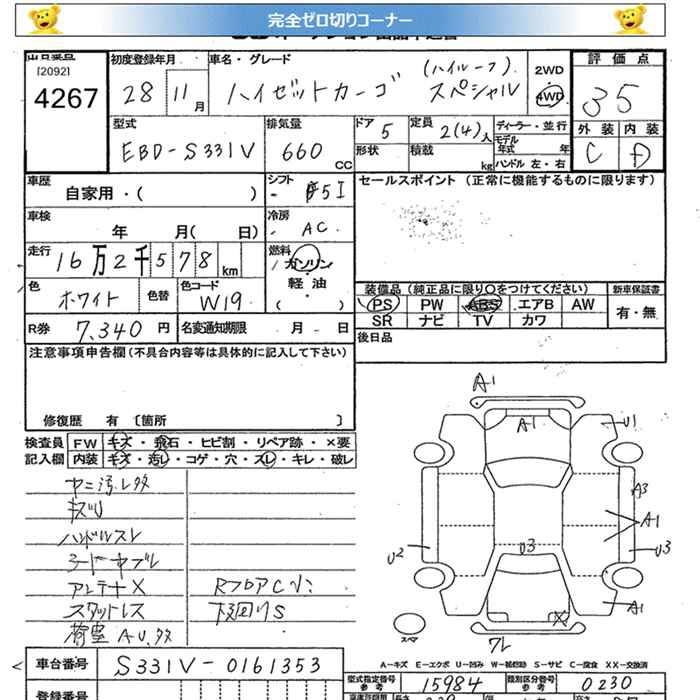 完全ゼロ切りコーナー
出品番号
[2092]
4267
初度登録年月
28 11月
車名・グレード
(ハイルーフ)
ハイゼットカーゴ スペシャル
2WD
4WD
評価点
35
型式
EBD-S331V
排気量
660 CC
ドア
5
形状
定員
2(4)人
積載
kg
ディーラー・並行
モデル年式 年
ハンドル 左・右
外装 内装
C D
車歴
自家用・( )
シフト
F5I
セールスポイント (正常に機能するものに限ります)
車検
年 月( 日)
冷房
AC
走行
16万2千578km
燃料
ガソリン
・
軽油
( )
色
ホワイト
色替
色コード
W19
装備品 (純正品に限り○をつけてください)
新車保証書
PS PW ABS エアB AW
有・無
SR ナビ TV カワ
R券 7,340円
名変通知期限 月 日
後日品
注意事項申告欄(不具合内容等は具体的に記入して下さい)
修復歴 有 〔箇所 〕
検査員 FW キズ・飛石・ヒビ割・リペア跡・×要
記入欄 内装 キズ・汚レ・コゲ・穴・スレ・キレ・破レ
ヤニ汚レ多
キズU
ハンドルスレ
シートヤブレ
アンテナX
スタットレス
荷室AU.多
RフロアC小
下廻りS
A1
A1
U1
A3
A1
U2
U3
U3
A1
X
スペア
ワレ
A-キズ E-エクボ U-凹み W-補修跡 S-サビ C-腐食 XX-交換済
車台番号
S331V-0161353
型式指定番号
参考
15984
類別区分番号
参考
0230
登録番号